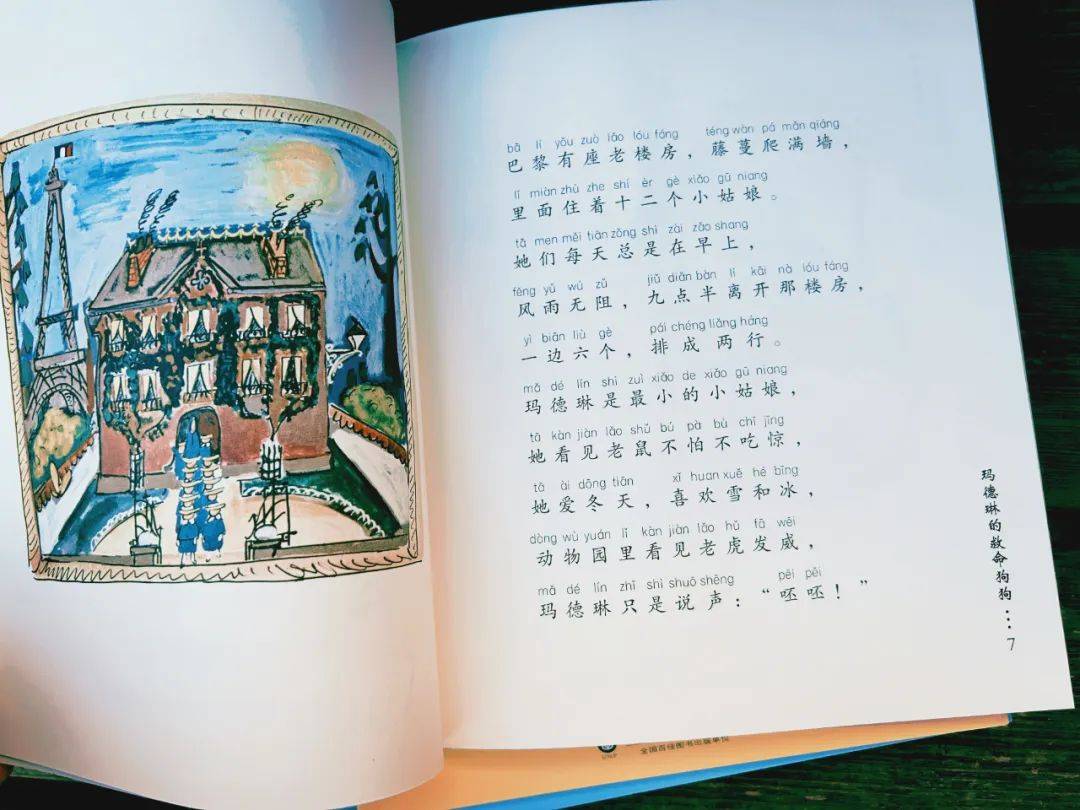 bā lí yǒu zuò lǎo lóu fáng téng wàn pá mǎn qiáng
巴黎有座老楼房，藤蔓爬满墙，
lǐ miàn zhù zhe shí èr gè xiǎo gū niang
里面住着十二个小姑娘。
tā men měi tiān zǒng shì zài zǎo shang
她们每天总是在早上，
fēng yǔ wú zǔ jiǔ diǎn bàn lí kāi nà lóu fáng
风雨无阻，九点半离开那楼房，
yì biān liù gè pái chéng liǎng háng
一边六个，排成两行。
mǎ dé lín shì zuì xiǎo de xiǎo gū niang
玛德琳是最小的小姑娘，
tā kàn jiàn lǎo shǔ bú pà bù chī jīng
她看见老鼠不怕不吃惊，
tā ài dōng tiān xǐ huan xuě hé bīng
她爱冬天，喜欢雪和冰，
dòng wù yuán lǐ kàn jiàn lǎo hǔ fā wēi
动物园里看见老虎发威，
mǎ dé lín zhǐ shì shuō shēng pēi pēi
玛德琳只是说声：“呸呸！”
玛德琳的救命狗狗…
7
全国百佳图书出版单位